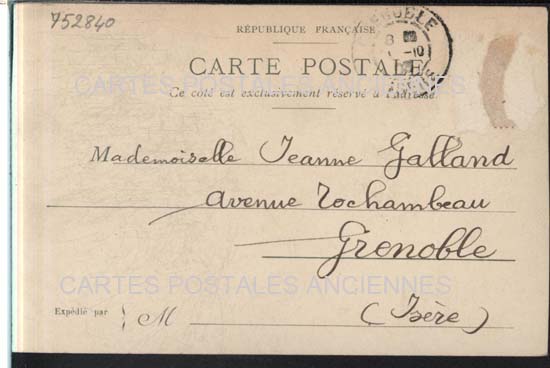 752840
RÉPUBLIQUE FRANÇAISE
CARTE POSTALE
CARTES POSTALES ANCIENNES
Ce côté est exclusivement réservé à l'adresse.
Mademoiselle Jeanne Galland
avenue Rochambeau
Grenoble
CARTES POSTALES ANCIENNES
(Isère)
Expédié par M